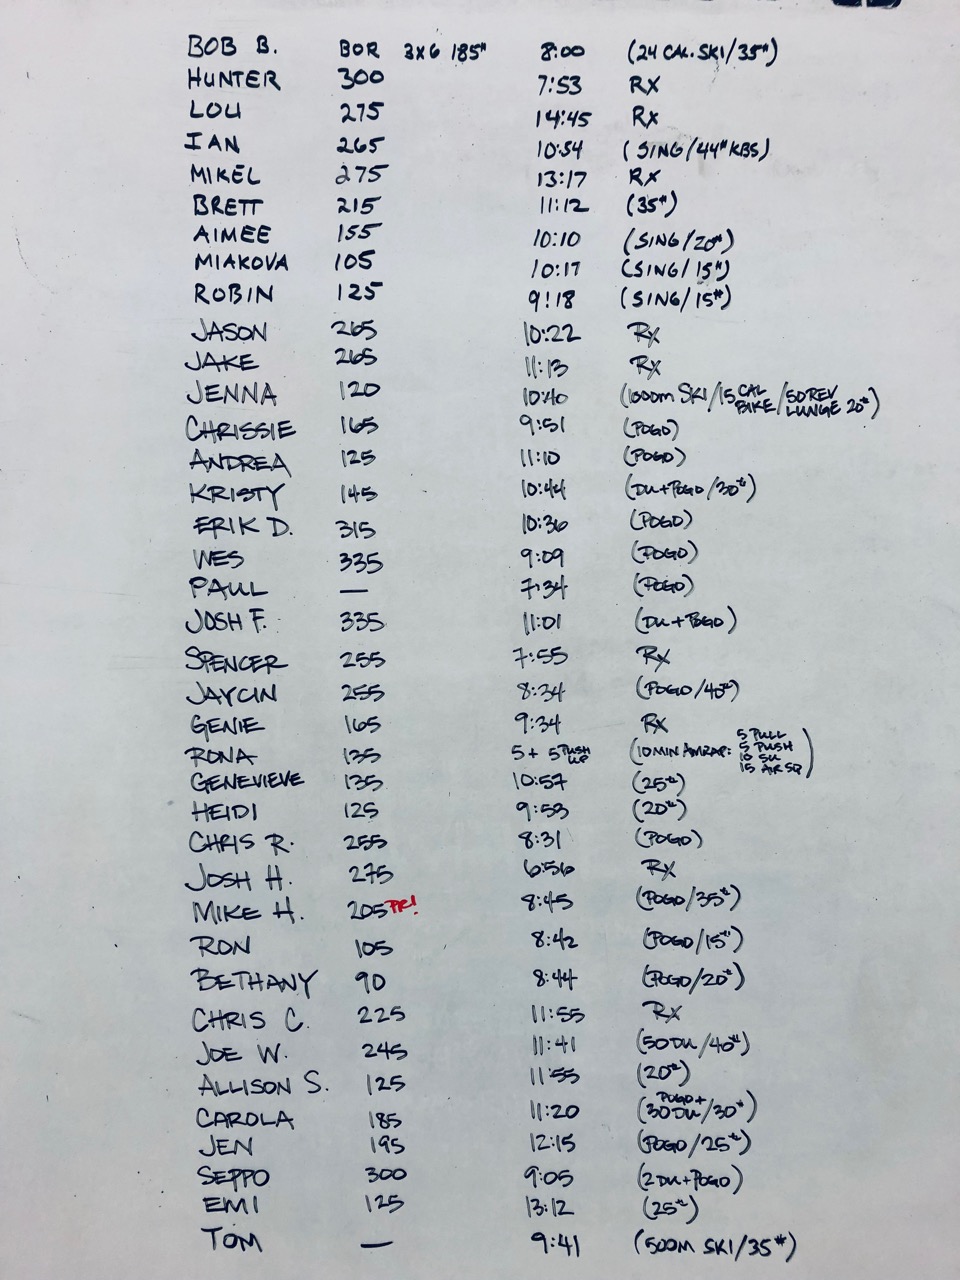 BOB B. BOR 3X6 185# 8:00 (24 CAL. SKI/35#)
HUNTER 300 7:53 RX
LOU 275 14:45 RX
IAN 265 10:54 (SING/44# KBS)
MIKEL 275 13:17 RX
BRETT 215 11:12 (35#)
AIMEE 155 10:10 (SING/20#)
MIAKOVA 105 10:17 (SING/15#)
ROBIN 125 9:18 (SING/15#)
JASON 265 10:22 RX
JAKE 265 11:13 RX
JENNA 120 10:40 (1000m SKI/15 CAL BIKE/50 REV LUNGE 20#)
CHRISSIE 165 9:51 (POGO)
ANDREA 125 11:10 (POGO)
KRISTY 145 10:44 (DU+POGO/30#)
ERIK D. 315 10:36 (POGO)
WES 335 9:09 (POGO)
PAUL — 7:34 (POGO)
JOSH F. 335 11:01 (DU+POGO)
SPENCER 255 7:55 RX
JAYCIN 255 8:34 (POGO/40#)
GENIE 165 9:34 RX
RONA 135 5+ 5 PUSH UP (10 MIN AMRAP: 5 PULL 5 PUSH 10 SU 15 AIR SQ)
GENEVIEVE 135 10:57 (25#)
HEIDI 125 9:53 (20#)
CHRIS R. 255 8:31 (POGO)
JOSH H. 275 6:56 RX
MIKE H. 205 PR! 8:45 (POGO/35#)
RON 105 8:42 (POGO/15#)
BETHANY 90 8:44 (POGO/20#)
CHRIS C. 225 11:55 RX
JOE W. 245 11:41 (50DU/40#)
ALLISON S. 125 11:55 (20#)
CAROLA 185 11:20 (POGO+ 30DU/30#)
JEN 195 12:15 (POGO/25#)
SEPPO 300 9:05 (2DU+POGO)
EMI 125 13:12 (25#)
TOM — 9:41 (500M SKI/35#)